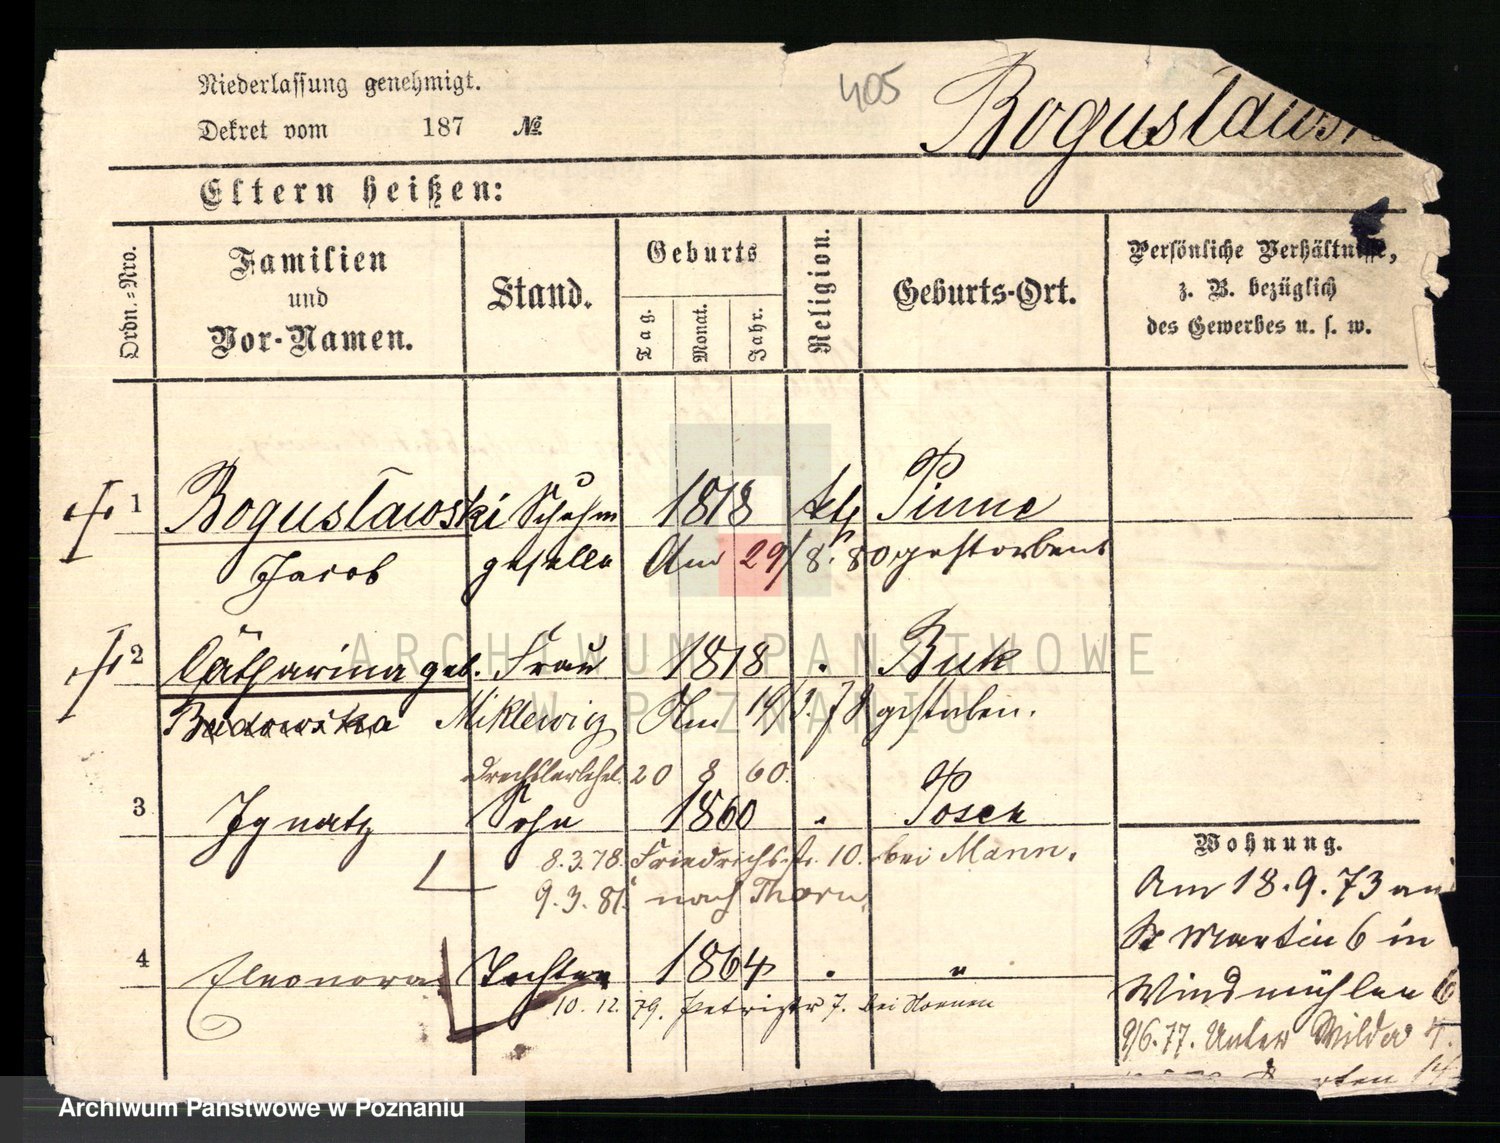 Niederlassung genehmigt.
405
Dekret vom 187 №
Boguslawsk
Eltern heißen:
Ordn.=Nro.
Familien und Vor-Namen.
Stand.
Geburts
Tag.
Monat.
Jahr.
Religion.
Geburts-Ort.
Persönliche Verhältnisse,
z. B. bezüglich
des Gewerbes u. s. w.
1 Boguslawski Schuhm 1818 kth Pinne
Jacob geselle Am 29/8. 80 gestorben
2 Catharina geb. Frau 1818 " Buk
Budowska Miklewicz Am 19/3. gestorben.
Drechslerlehrl. 20 8 60.
3 Ignatz Sohn 1860 " Posen
8.3.78. Friedrichstr. 10. bei Mann.
9.3.81. nach Thorn.
4 Eleonora Tochter 1864 " "
10. 12. 79. Petristr 7. bei
Wohnung.
Am 18.9.73 an
St Martin 6 in
Windmühlen 6
9/6.77. Unter Wilda 4.
Garten 14
ARCHIWUM PAŃSTWOWE
W POZNANIU
Archiwum Państwowe w Poznaniu